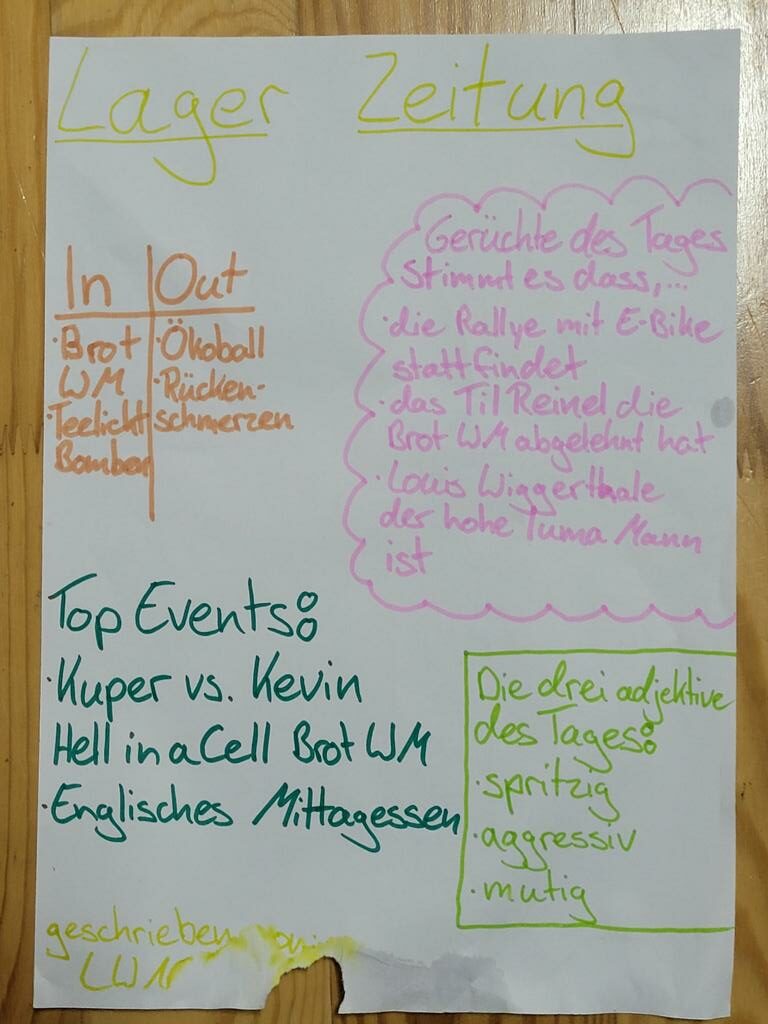 Lager Zeitung
In | Out
·Brot
WM
·Teelicht
Bomber
·Ökoball
·Rücken-
schmerzen
Gerüchte des Tages
Stimmt es dass,...
·die Rallye mit E-Bike
stattfindet
·das Til Reinel die
Brot WM abgelehnt hat
·Louis Wiggerthale
der hohe Tuma Mann
ist
Top Events:
·Kuper vs. Kevin
Hell in a Cell Brot WM
·Englisches Mittagessen
Die drei adjektive
des Tages:
·spritzig
·aggressiv
·mutig
geschrieben von:
LWN